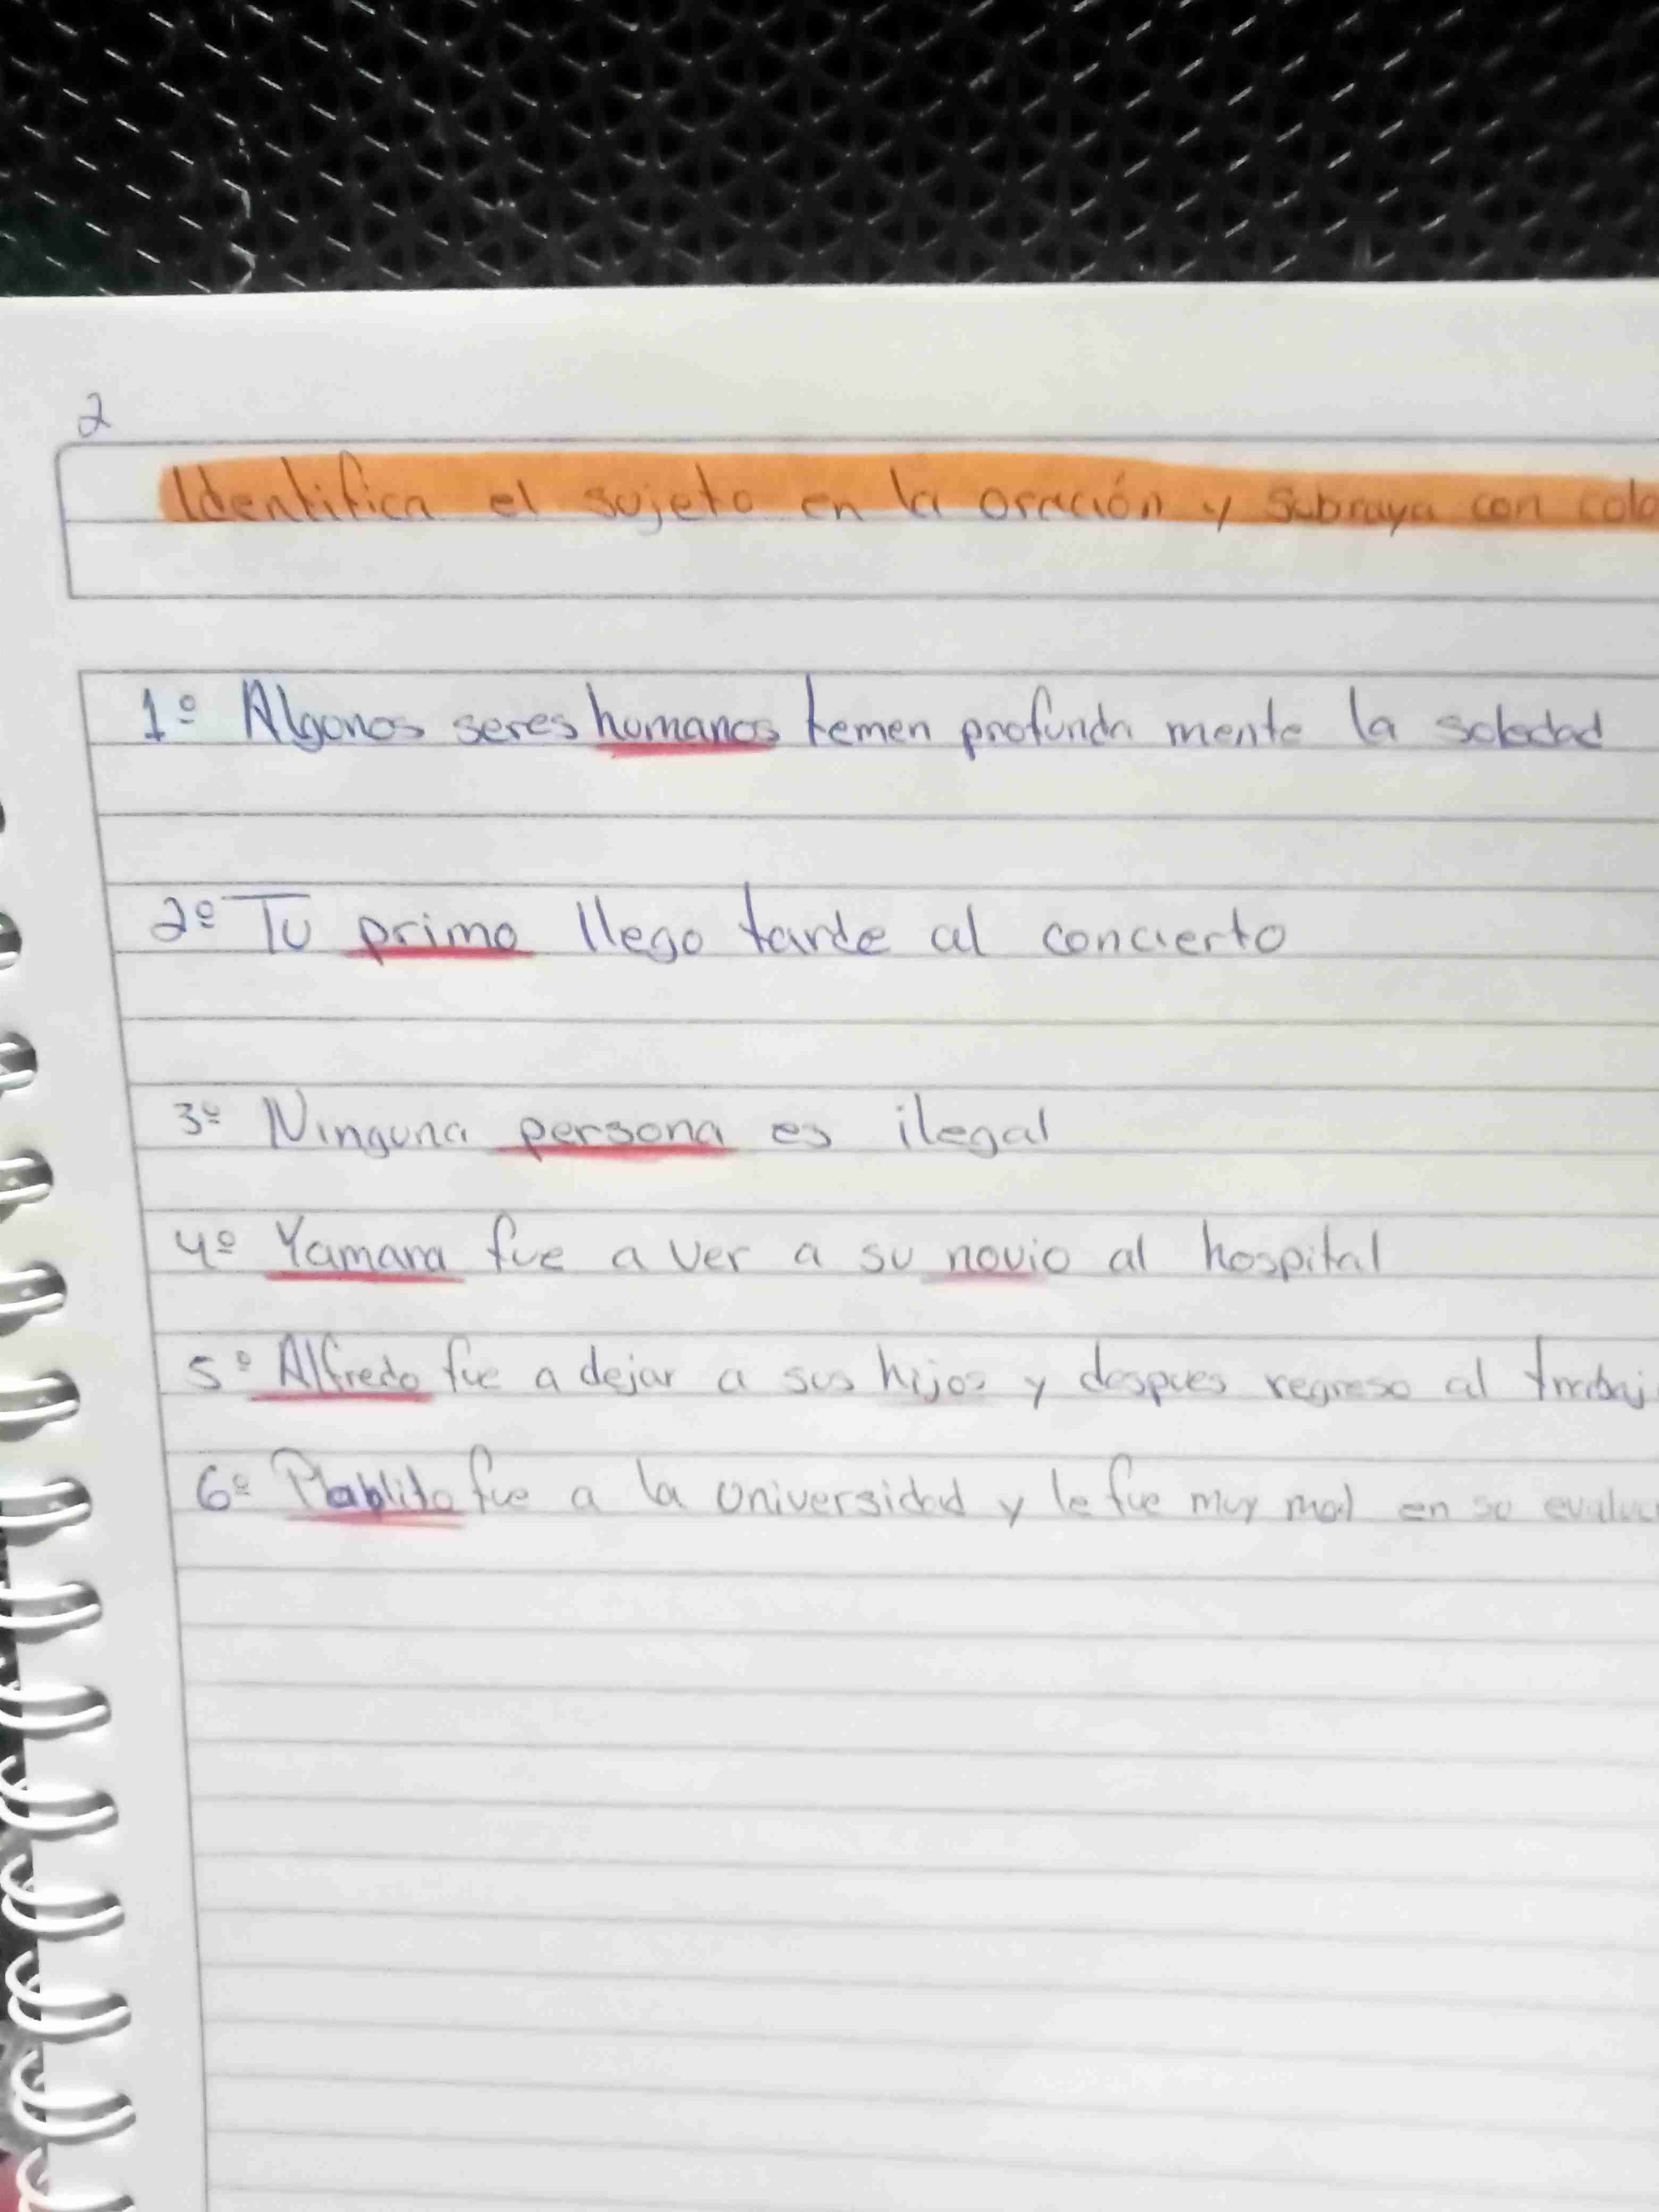 2
Identifica el sujeto en la oración y subraya con colo
1º Algunos seres humanos temen profunda mente la soledad
2º Tu primo llego tarde al concierto
3º Ninguna persona es ilegal
4º Yamara fue a ver a su novio al hospital
5º Alfredo fue a dejar a sus hijos y despues regreso al trabaj
6º Pablito fue a la universidad y le fue muy mal en su evaluc